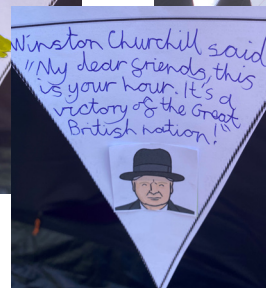 Winston Churchill said
"My dear friends, this
is your hour. It's a
victory of the Great
British nation!"